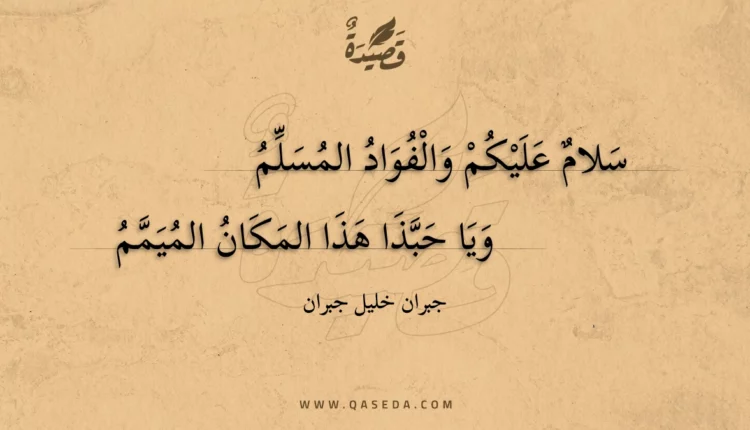 قَصِيْدَةٌ
سَلامٌ عَلَيْكُمْ وَالْفُوَادُ المُسَلِّمُ
وَيَا حَبَّذَا هَذَا المَكَانُ المُيَمَّمُ
جبران خليل جبران
WWW.QASEDA.COM